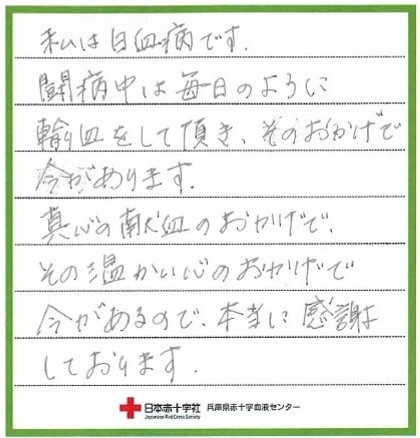 私は白血病です.
闘病中は毎日のように
輸血をして頂き、そのおかげで
今があります.
真心の献血のおかげで、
その温かい心のおかげで
今があるので、本当に感謝は
しております.
日本赤十字社 兵庫県赤十字血液センター
Japanese Red Cross Society